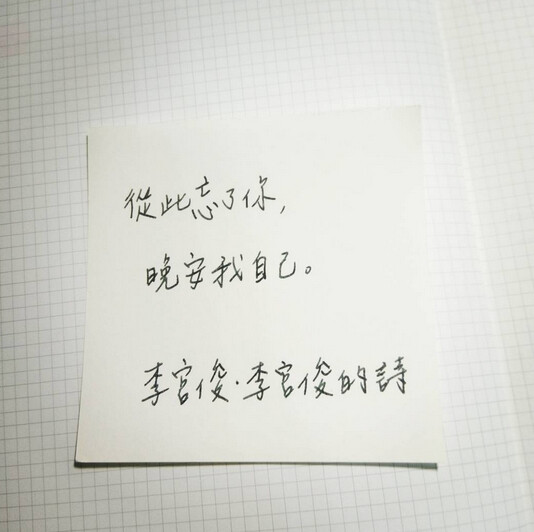 從此忘了你,
晚安我自己。
李宮俊·李宮俊的詩